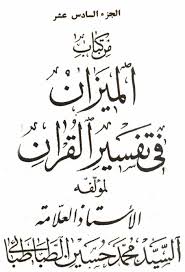 الجزء السادس عشر
من كتاب
الميزان
في تفسير القرآن
لمؤلفه
الأستاذ العلامة
السيد محمد حسين الطباطبائي